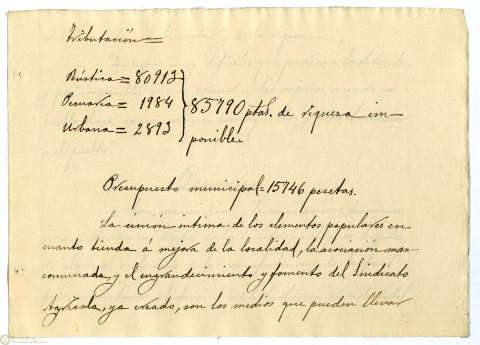 Tributación =
Rústica = 80913
Pecuaria = 1984
Urbana = 2893
85790 ptas. de riqueza im-
ponible.
Presupuesto municipal = 15746 pesetas.
La unión intima de los elementos populares en
cuanto tienda á mejora de la localidad, la asociación man
comunada, y el engrandecimiento y fomento del Sindicato
Agrícola, ya creado, son los medios que pueden llevar